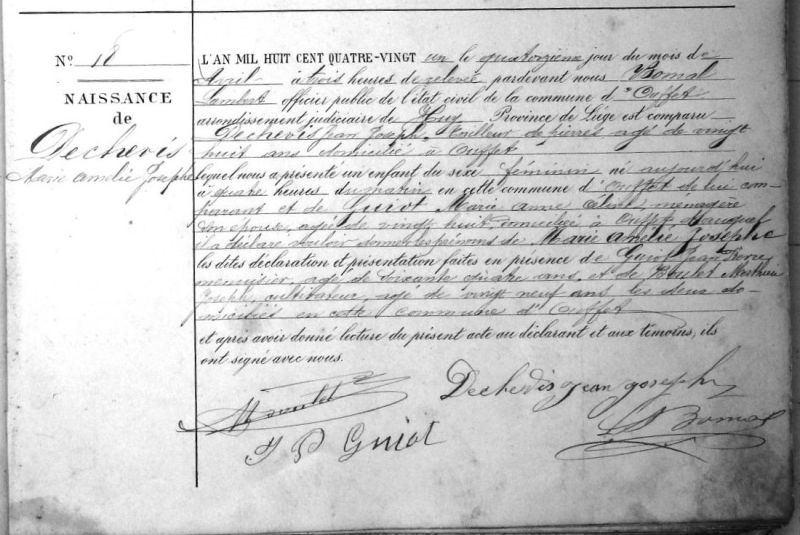 N° 18
NAISSANCE
de
Dechevis
Marie Amélie Josephe
L'AN MIL HUIT CENT QUATRE-VINGT un le quatorzième jour du mois de
Avril à trois heures de relevée pardevant nous Bomal
Lambert officier public de l'état civil de la commune d'Ouffet
arrondissement judiciaire de Huy Province de Liége est comparu
Dechevis Jean Joseph, tailleur de pierres agé de vingt
huit ans domicilié à Ouffet
lequel nous a présenté un enfant du sexe féminin né aujourd'hui
à quatre heures du matin en cette commune d'Ouffet de lui com-
parant et de Guiot Marie Anne Céline, menagère
son épouse, agée de vingt huit, domiciliée à Ouffet, & auquel
il a déclaré vouloir donner les prénoms de Marie Amélie Josephe
les dites déclaration et présentation faites en présence de Guiot Jean Pierre
menuisier, agé de soixante quatre ans, et de
Joseph, cultivateur, agé de vingt neuf ans les deux do-
miciliés en cette commune d'Ouffet
et après avoir donné lecture du présent acte au déclarant et aux témoins, ils
ont signé avec nous.
Dechevis Jean Joseph
J P Guiot
L Bomal